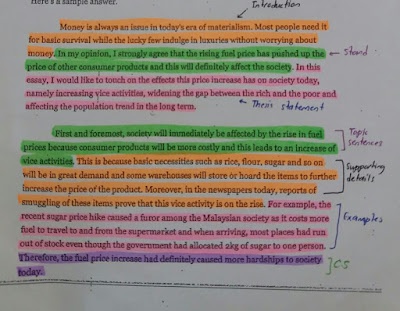 Here's a sample answer.
Introduction
Money is always an issue in today's era of materialism. Most people need it
for basic survival while the lucky few indulge in luxuries without worrying about
money. In my opinion, I strongly agree that the rising fuel price has pushed up the
price of other consumer products and this will definitely affect the society. In this
← Stand
essay, I would like to touch on the effects this price increase has on society today,
namely increasing vice activities, widening the gap between the rich and the poor and
affecting the population trend in the long term.
← Thesis statement
First and foremost, society will immediately be affected by the rise in fuel
prices because consumer products will be more costly and this leads to an increase of
Topic
sentences
vice activities. This is because basic necessities such as rice, flour, sugar and so on
will be in great demand and some warehouses will store or hoard the items to further
increase the price of the product. Moreover, in the newspapers today, reports of
Supporting
details
smuggling of these items prove that this vice activity is on the rise. For example, the
recent sugar price hike caused a furor among the Malaysian society as it costs more
fuel to travel to and from the supermarket and when arriving, most places had run
out of stock even though the government had allocated 2kg of sugar to one person.
Examples
Therefore, the fuel price increase had definitely caused more hardships to society
today.
C.S